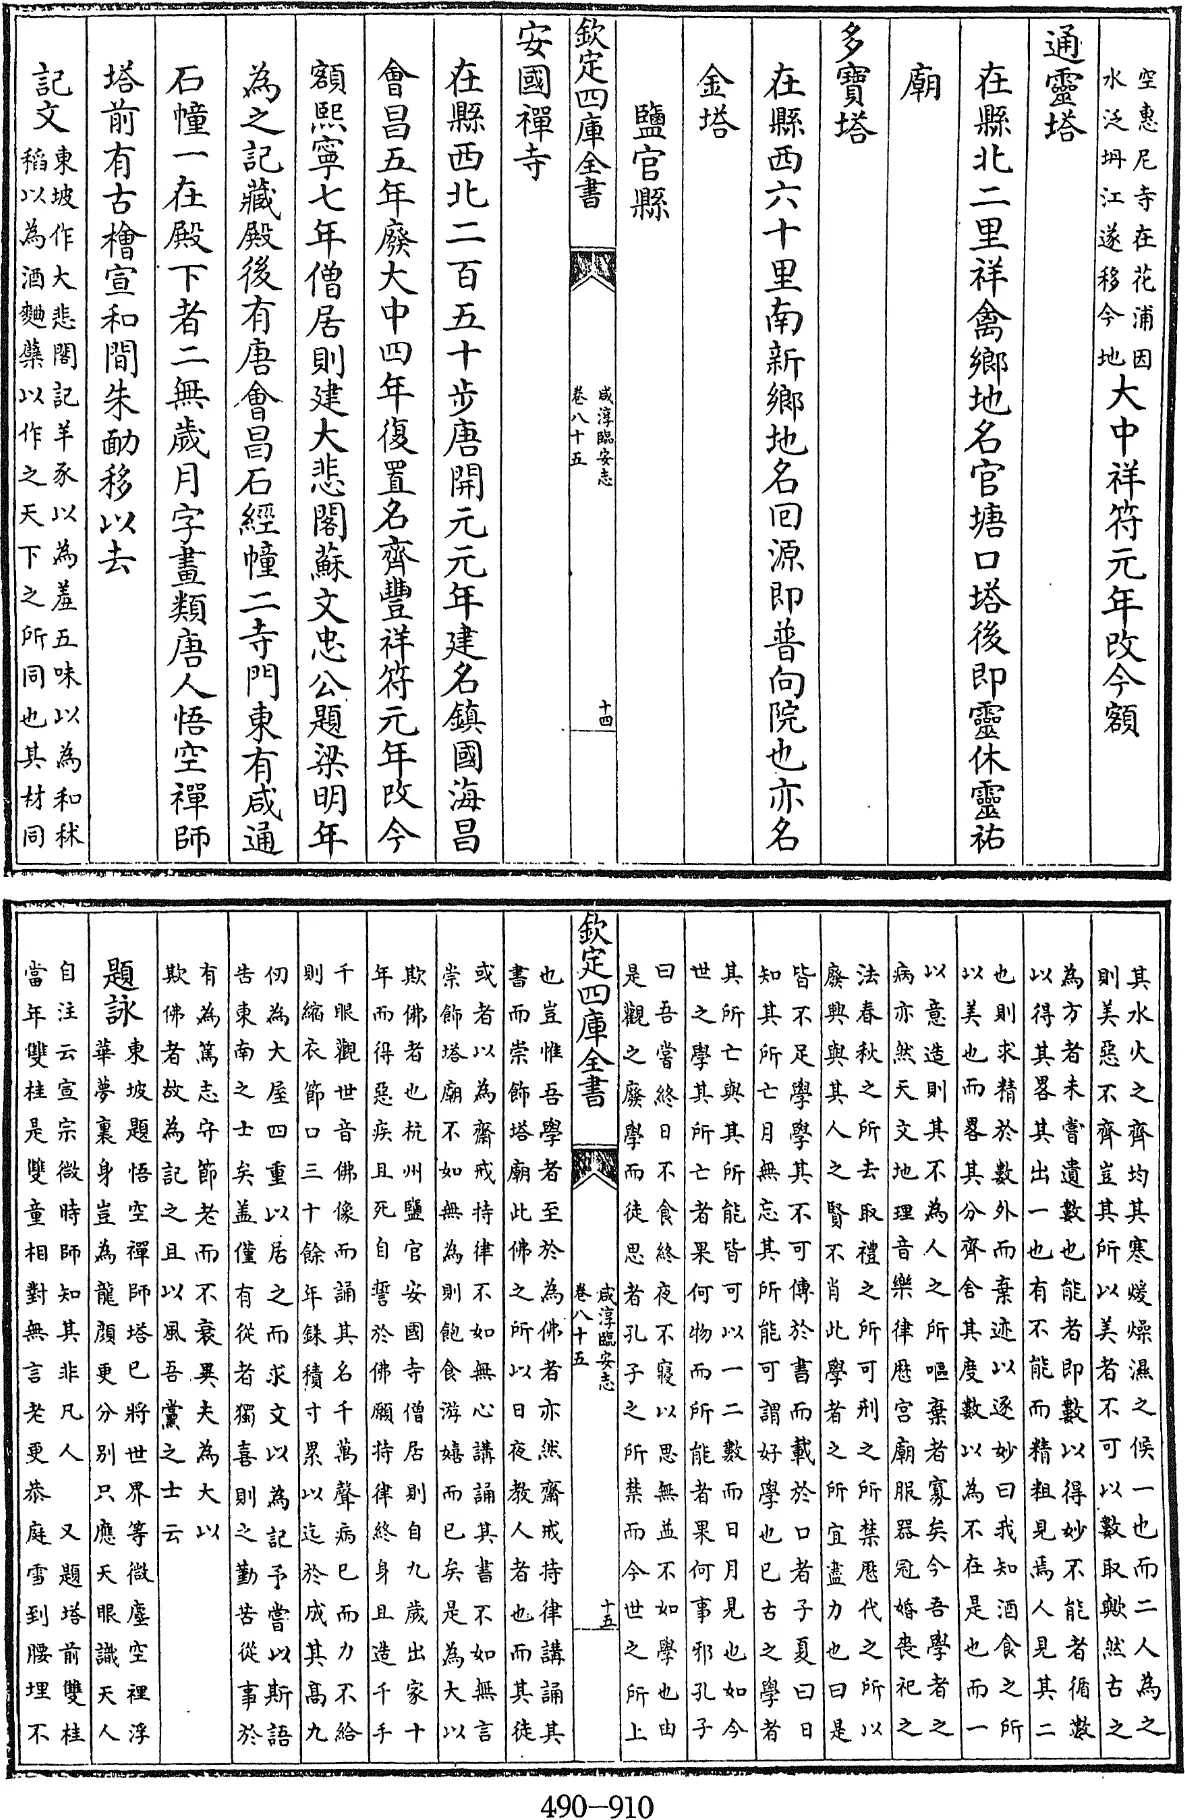 空惠尼寺在花浦因
水泛坍江遂移今地
大中祥符元年改今額
通靈塔
在縣北二里祥禽鄉地名官塘口塔後即靈休靈祐
廟
多寶塔
在縣西六十里南新鄉地名回源即普向院也亦名
金塔
鹽官縣
欽定四庫全書
咸淳臨安志
卷八十五
十四
安國禪寺
在縣西北二百五十步唐開元元年建名鎮國海昌
會昌五年廢大中四年復置名齊豐祥符元年改今
額熙寧七年僧居則建大悲閣蘇文忠公題梁明年
為之記藏殿後有唐會昌石經幢二寺門東有咸通
石幢一在殿下者二無歲月字畫類唐人悟空禪師
塔前有古檜宣和間朱勔移以去
記文
東坡作大悲閣記羊豕以為羞五味以為和秫
稻以為酒麴蘖以作之天下之所同也其材同
其水火之齊均其寒煖燥濕之候一也而二人為之
則美惡不齊豈其所以美者不可以數取歟然古之
為方者未嘗遺數也能者即數以得妙不能者循數
以得其畧其出一也有不能而精粗見焉人見其二
也則求精於數外而棄迹以逐妙曰我知酒食之所
以美也而畧其分齊舍其度數以為不在是也而一
以意造則其不為人之所嘔棄者寡矣今吾學者之
病亦然天文地理音樂律厯宮廟服器冠婚喪祀之
法春秋之所去取禮之所可刑之所禁厯代之所以
廢興與其人之賢不肖此學者之所宜盡力也曰是
皆不足學學其不可傳於書而載於口者子夏曰日
知其所亡月無忘其所能可謂好學也已古之學者
其所亡與其所能皆可以一二數而日月見也如今
世之學其所亡者果何物而所能者果何事邪孔子
曰吾嘗終日不食終夜不寢以思無益不如學也由
是觀之廢學而徒思者孔子之所禁而今世之所上
欽定四庫全書
咸淳臨安志
卷八十五
十五
也豈惟吾學者至於為佛者亦然齋戒持律講誦其
書而崇飾塔廟此佛之所以日夜教人者也而其徒
或者以為齋戒持律不如無心講誦其書不如無言
崇飾塔廟不如無為則飽食游嬉而已矣是為大以
欺佛者也杭州鹽官安國寺僧居則自九歲出家十
年而得惡疾且死自誓於佛願持律終身且造千手
千眼觀世音佛像而誦其名千萬聲病已而力不給
則縮衣節口三十餘年銖積寸累以迄於成其高九
仞為大屋四重以居之而求文以為記予嘗以斯語
告東南之士矣盖僅有從者獨喜則之勤苦從事於
有為篤志守節老而不衰異夫為大以
欺佛者故為記之且以風吾黨之士云
題詠
東坡題悟空禪師塔已將世界等微塵空裡浮
華夢裏身豈為龍顏更分別只應天眼識天人
自注云宣宗微時師知其非凡人 又題塔前雙桂
當年雙桂是雙童相對無言老更恭庭雪到腰埋不
490-910